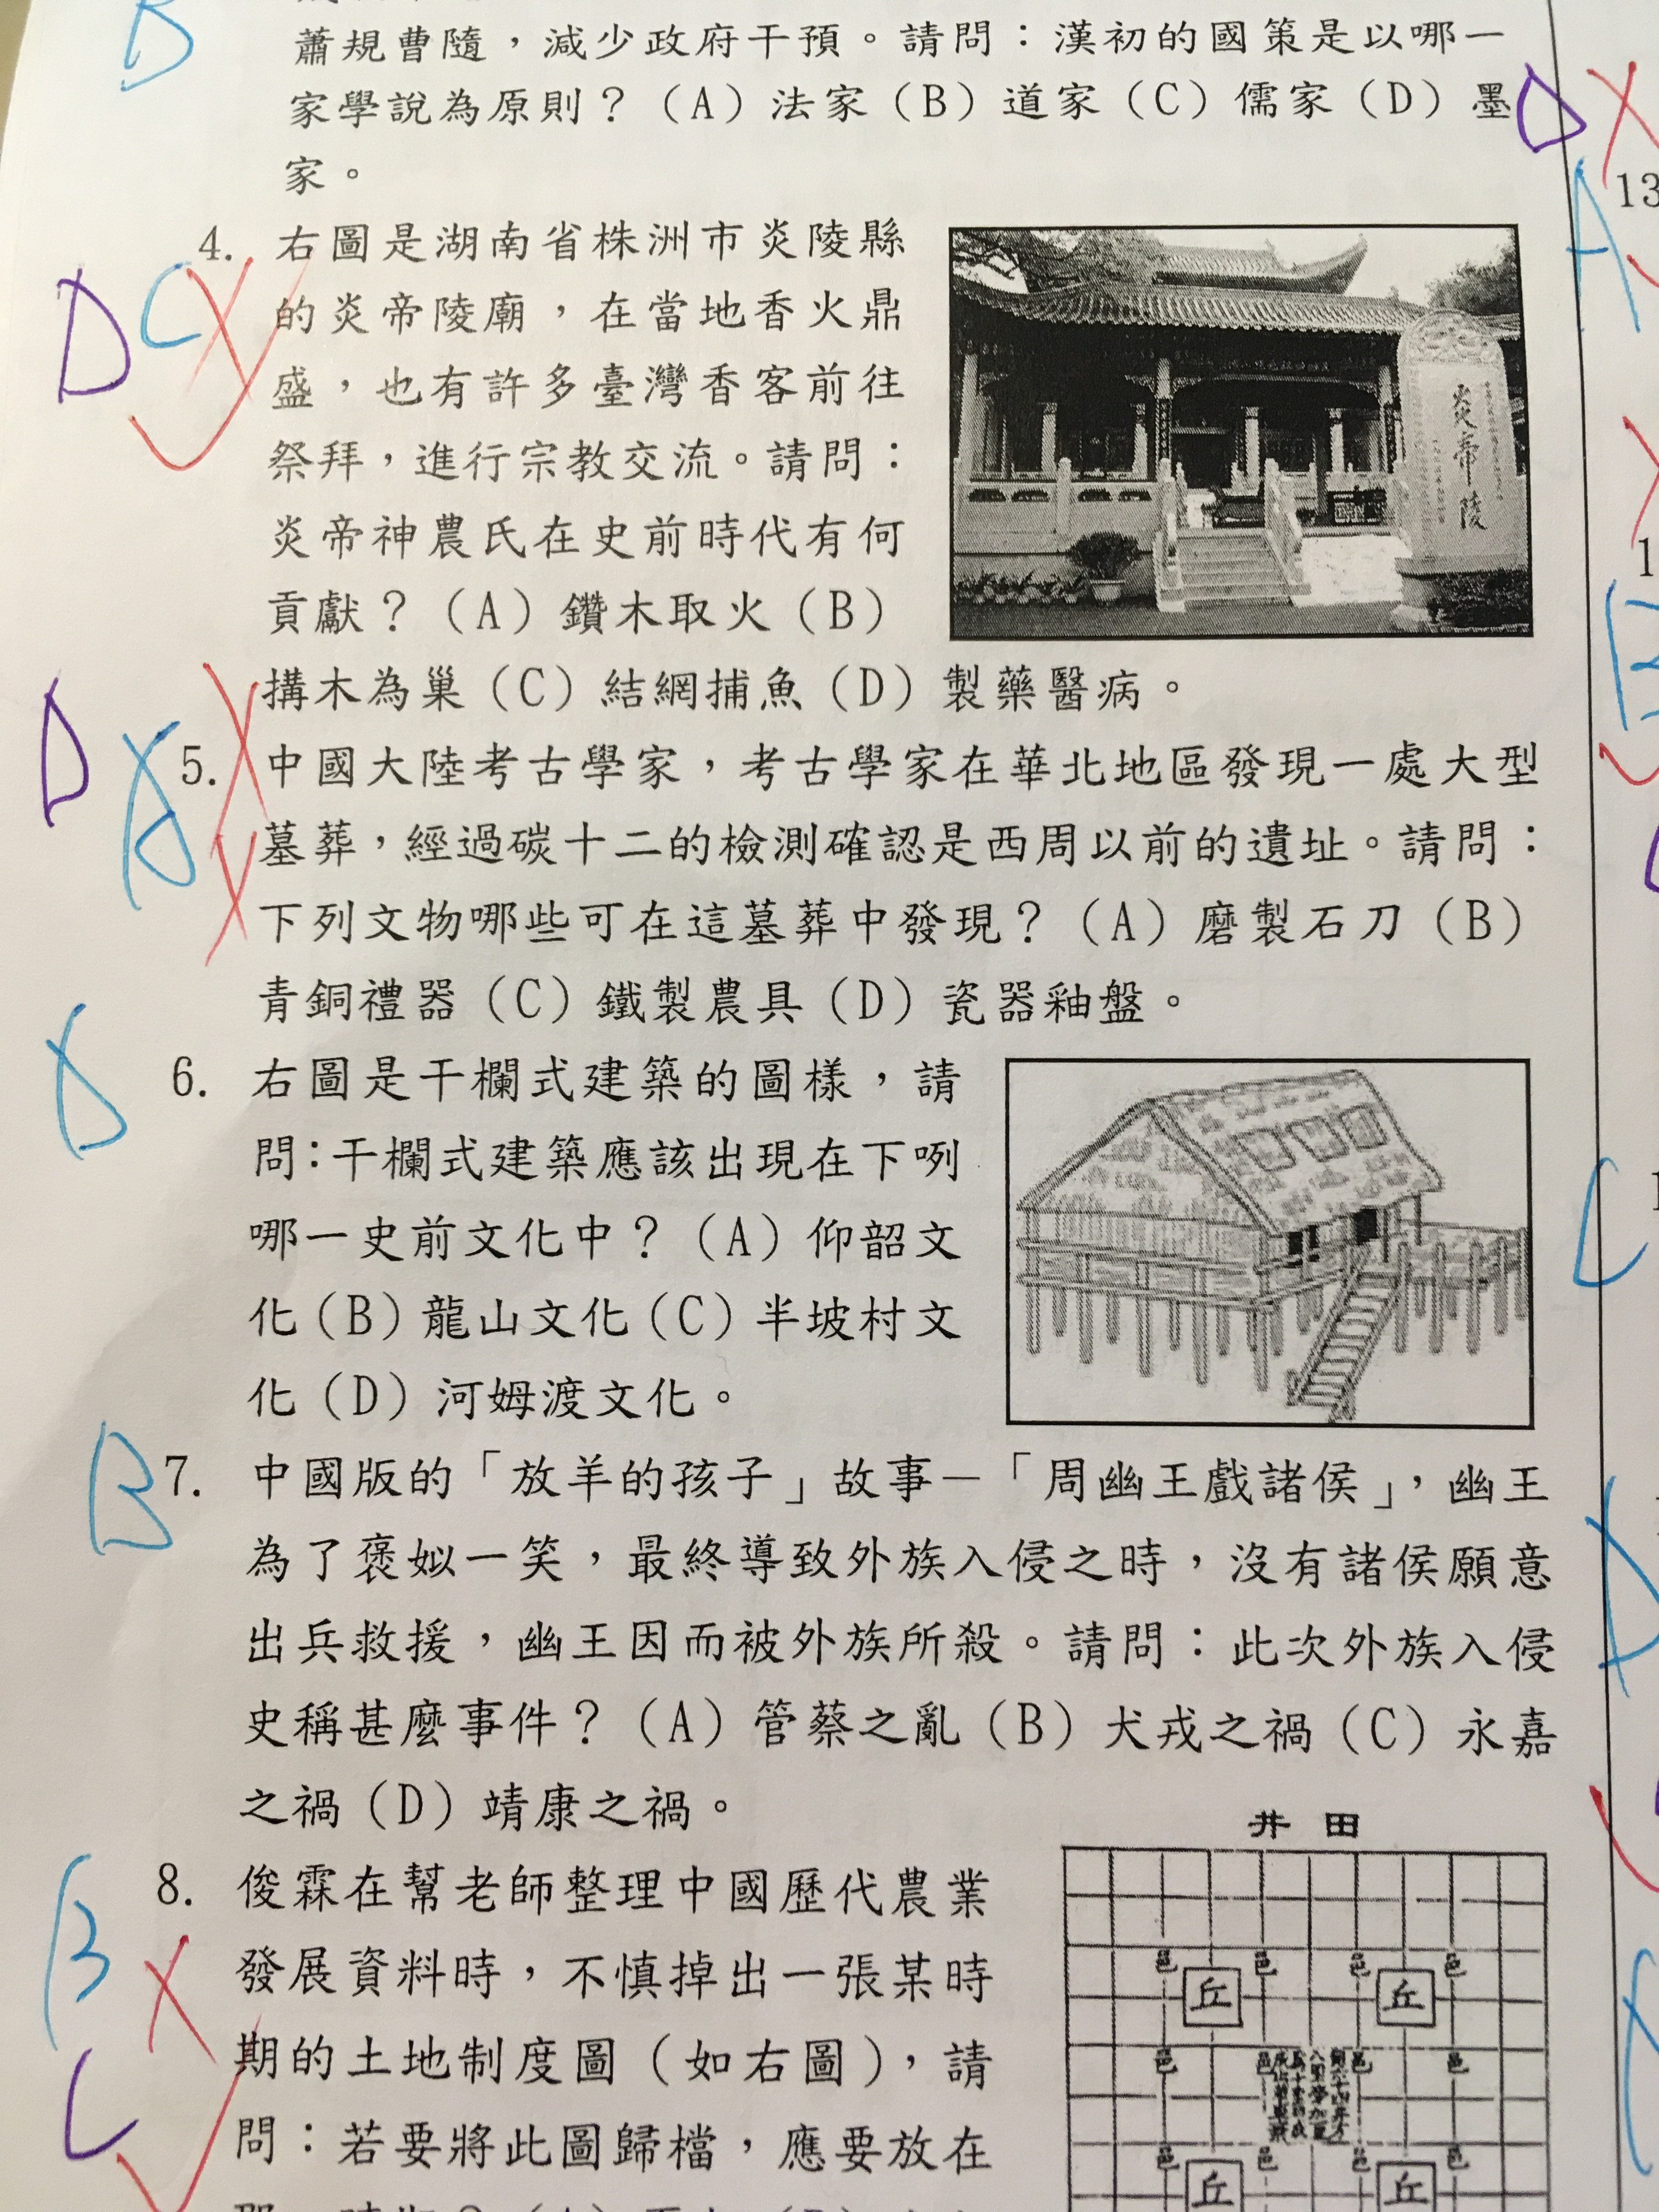 B
蕭規曹隨，減少政府干預。請問：漢初的國策是以哪一
家學說為原則？（A）法家（B）道家（C）儒家（D）墨
家。
4. 右圖是湖南省株洲市炎陵縣
的炎帝陵廟，在當地香火鼎
盛，也有許多臺灣香客前往
祭拜，進行宗教交流。請問：
炎帝神農氏在史前時代有何
貢獻？（A）鑽木取火（B）
搆木為巢（C）結網捕魚（D）製藥醫病。
炎帝陵
D C
5. 中國大陸考古學家，考古學家在華北地區發現一處大型
墓葬，經過碳十二的檢測確認是西周以前的遺址。請問：
下列文物哪些可在這墓葬中發現？（A）磨製石刀（B）
青銅禮器（C）鐵製農具（D）瓷器釉盤。
D
6. 右圖是干欄式建築的圖樣，請
問：干欄式建築應該出現在下咧
哪一史前文化中？（A）仰韶文
化（B）龍山文化（C）半坡村文
化（D）河姆渡文化。
D
7. 中國版的「放羊的孩子」故事－「周幽王戲諸侯」，幽王
為了褒姒一笑，最終導致外族入侵之時，沒有諸侯願意
出兵救援，幽王因而被外族所殺。請問：此次外族入侵
史稱甚麼事件？（A）管蔡之亂（B）犬戎之禍（C）永嘉
之禍（D）靖康之禍。
B
8. 俊霖在幫老師整理中國歷代農業
發展資料時，不慎掉出一張某時
期的土地制度圖（如右圖），請
問：若要將此圖歸檔，應要放在
B
C
井田
邑 邑 邑 邑
丘 丘
邑 邑 邑 邑
邑 邑 邑 邑
丘 丘
D
13
A